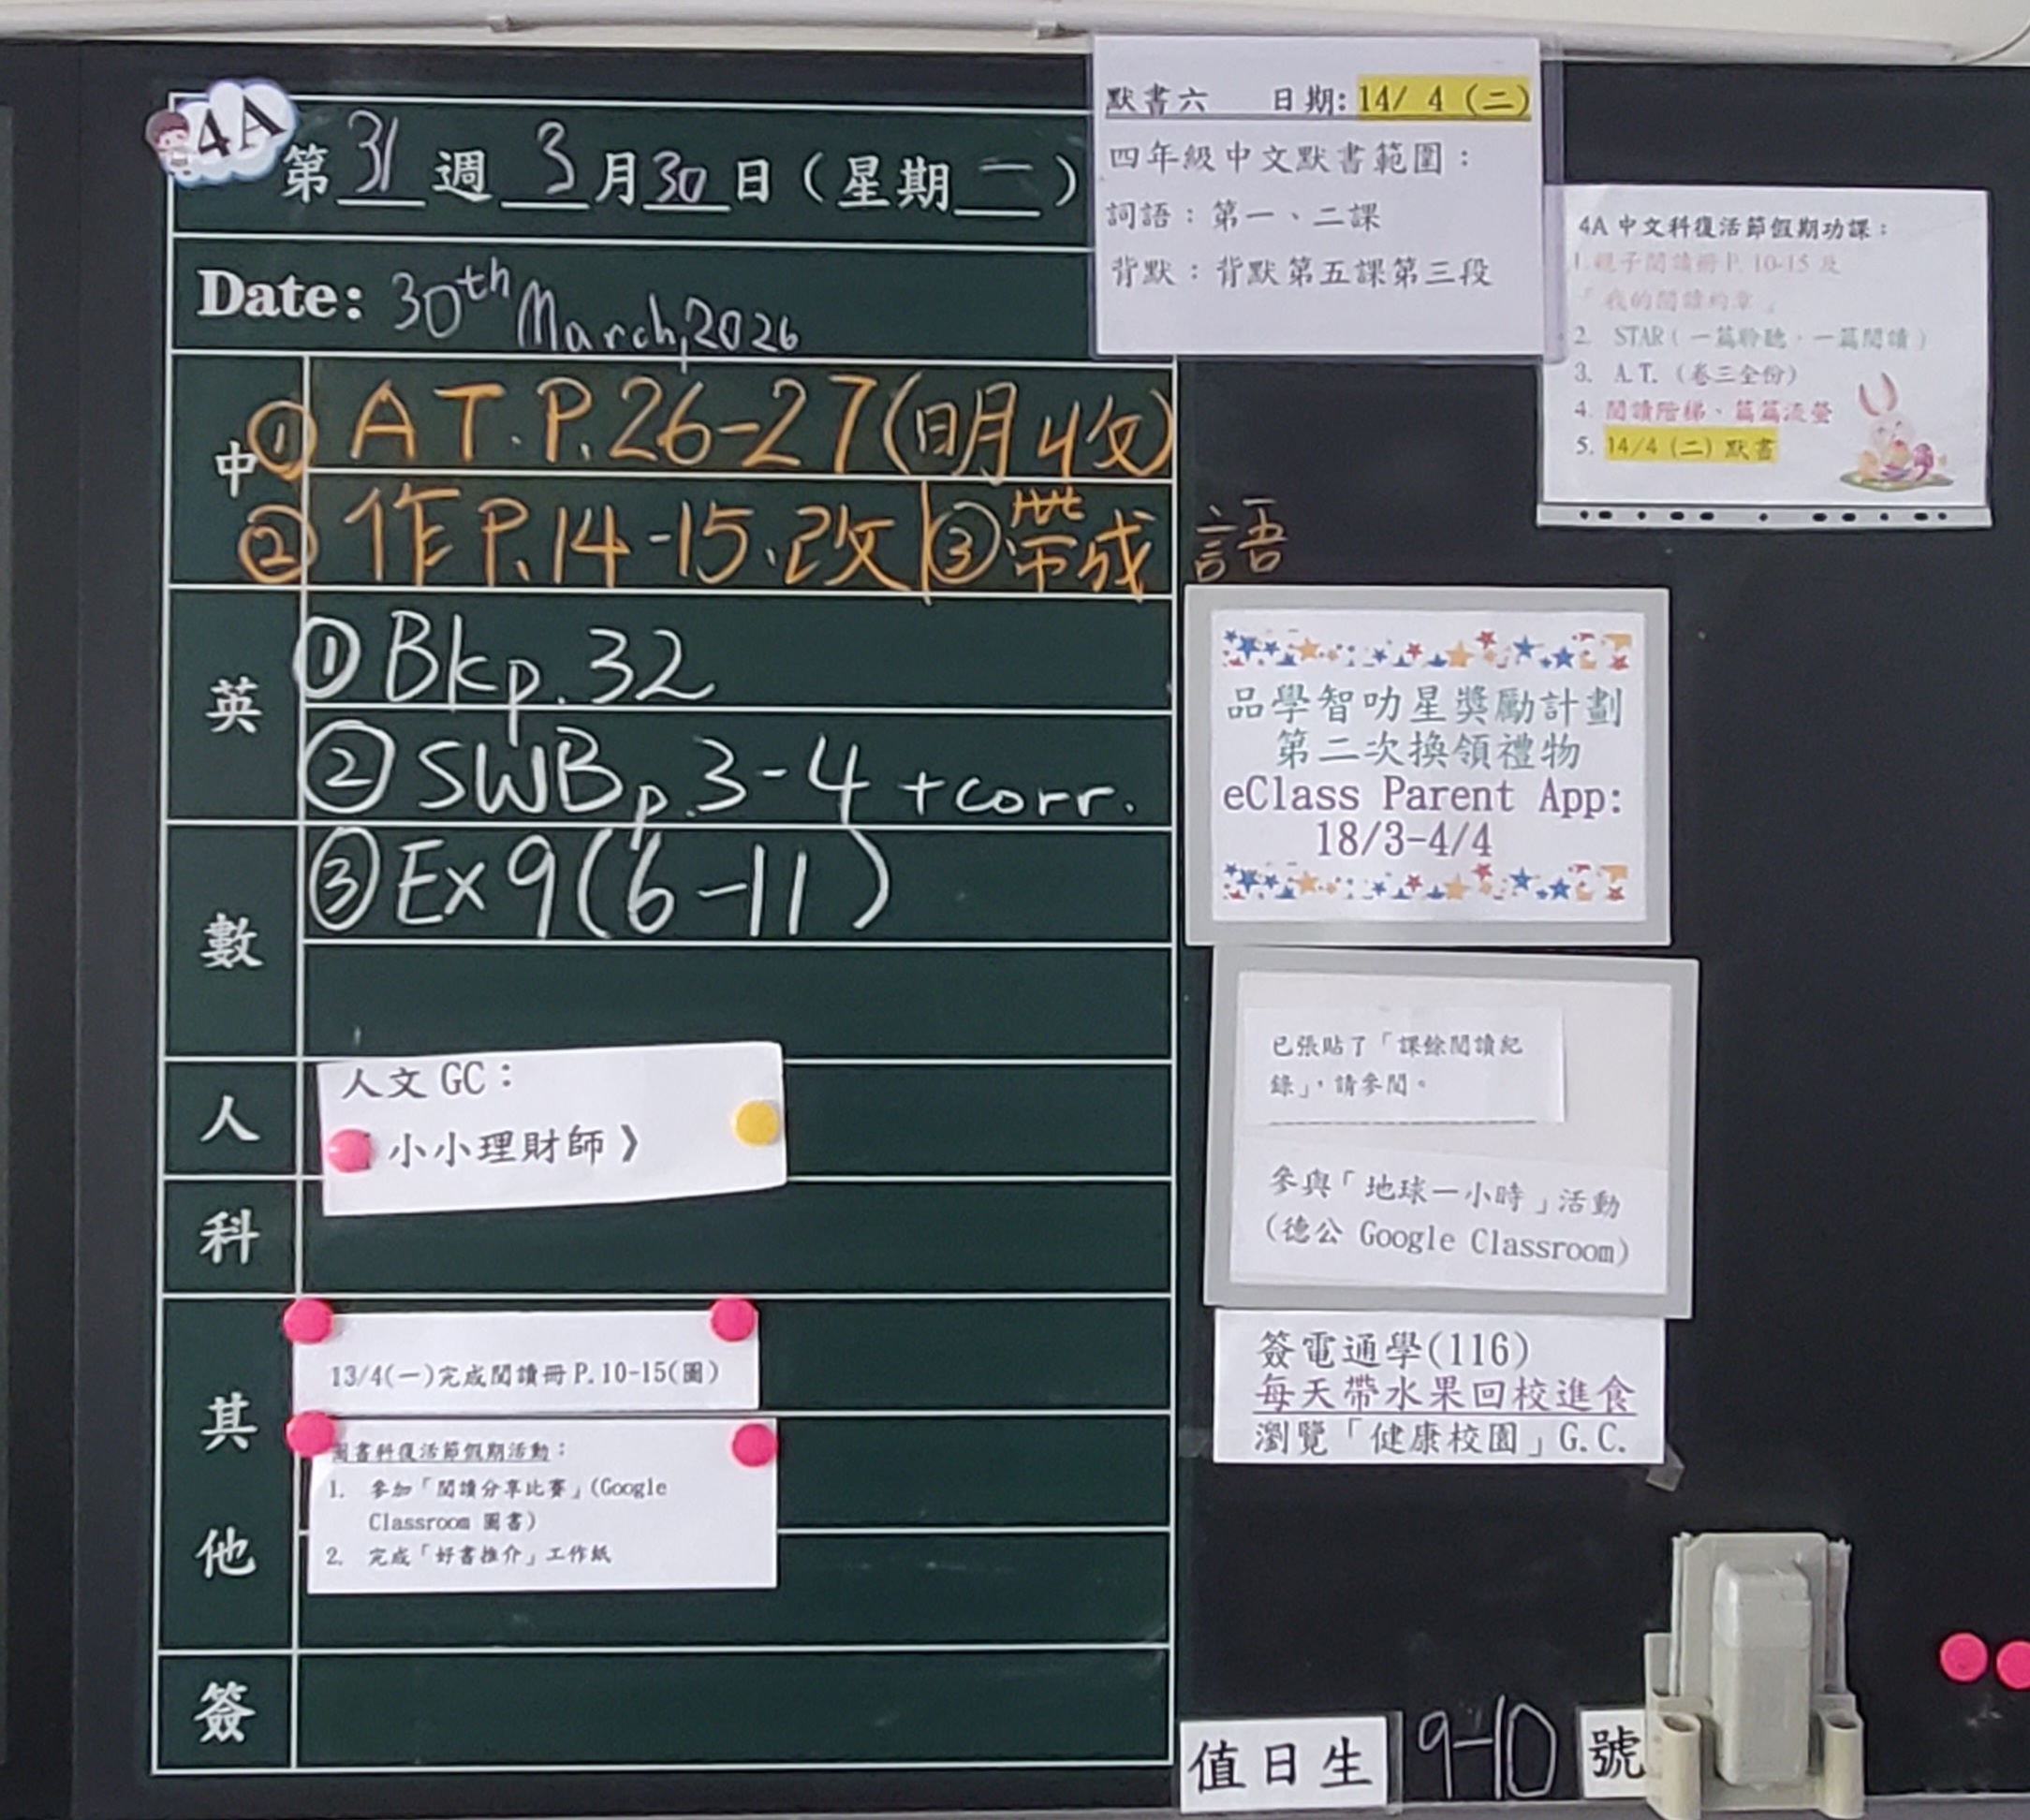 4A
第 31 週 3 月 30 日（星期 一）
Date: 30th March, 2026
中
① A T. P. 26-27 (明收)
② 作 P. 14-15.改 ③ 帶成語
英
① Bk p. 32
② SWB p. 3-4 + corr.
數
③ Ex 9 (6-11)
人
人文 GC：
小小理財師》
科
其他
13/4(一)完成閱讀冊 P.10-15(圖)
圖書科復活節假期活動：
1. 參加「閱讀分享比賽」(Google
Classroom 圖書)
2. 完成「好書推介」工作紙
簽
默書六 日期: 14/ 4 (二)
四年級中文默書範圍：
詞語：第一、二課
背默：背默第五課第三段
4A 中文科復活節假期功課：
1.親子閱讀冊 P. 10-15 及
「我的閱讀約章」
2. STAR（一篇聆聽，一篇閱讀）
3. A.T.（卷三全份）
4. 閱讀階梯、篇篇流螢
5. 14/4 (二) 默書
品學智叻星獎勵計劃
第二次換領禮物
eClass Parent App:
18/3-4/4
已張貼了「課餘閱讀紀
錄」，請參閱。
參與「地球一小時」活動
(德公 Google Classroom)
簽電通學(116)
每天帶水果回校進食
瀏覽「健康校園」G.C.
值日生 9-10 號